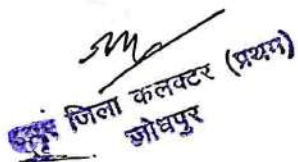 जिला कलक्टर (प्रथम)
जोधपुर